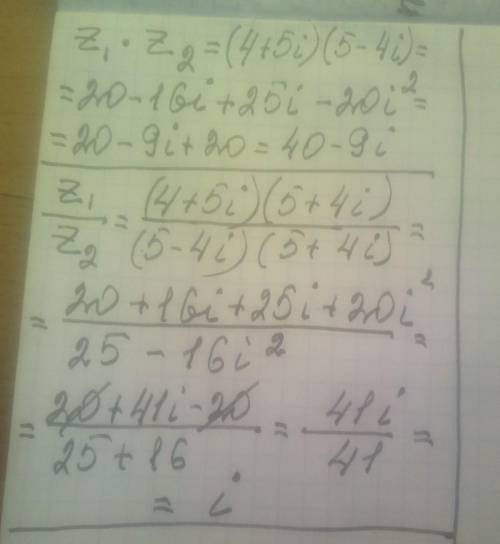 z₁ · z₂ = (4+5i)(5-4i) =
= 20 - 16i + 25i - 20i² =
= 20 - 9i + 20 = 40 - 9i
z₁/z₂ = (4+5i)(5+4i)/(5-4i)(5+4i) =
= 20 + 16i + 25i + 20i²/25 - 16i² =
= 20 + 41i - 20/25 + 16 = 41i/41 =
= i